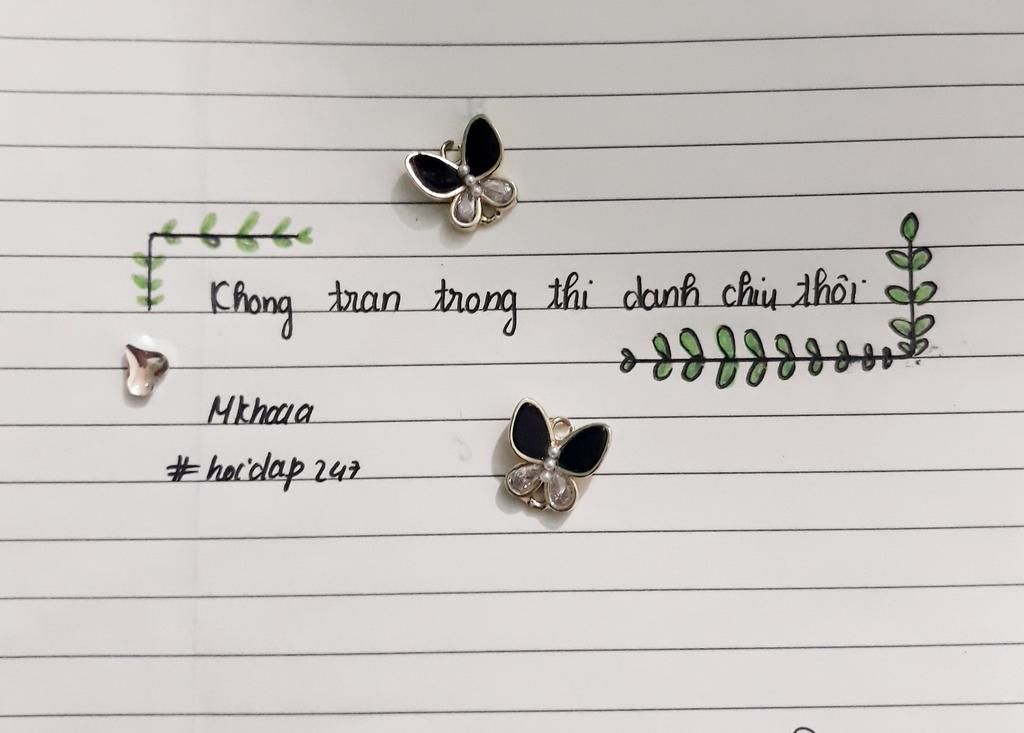 Khong tran trong thi danh chiu thôi
Mkhoaa
#hoidap247